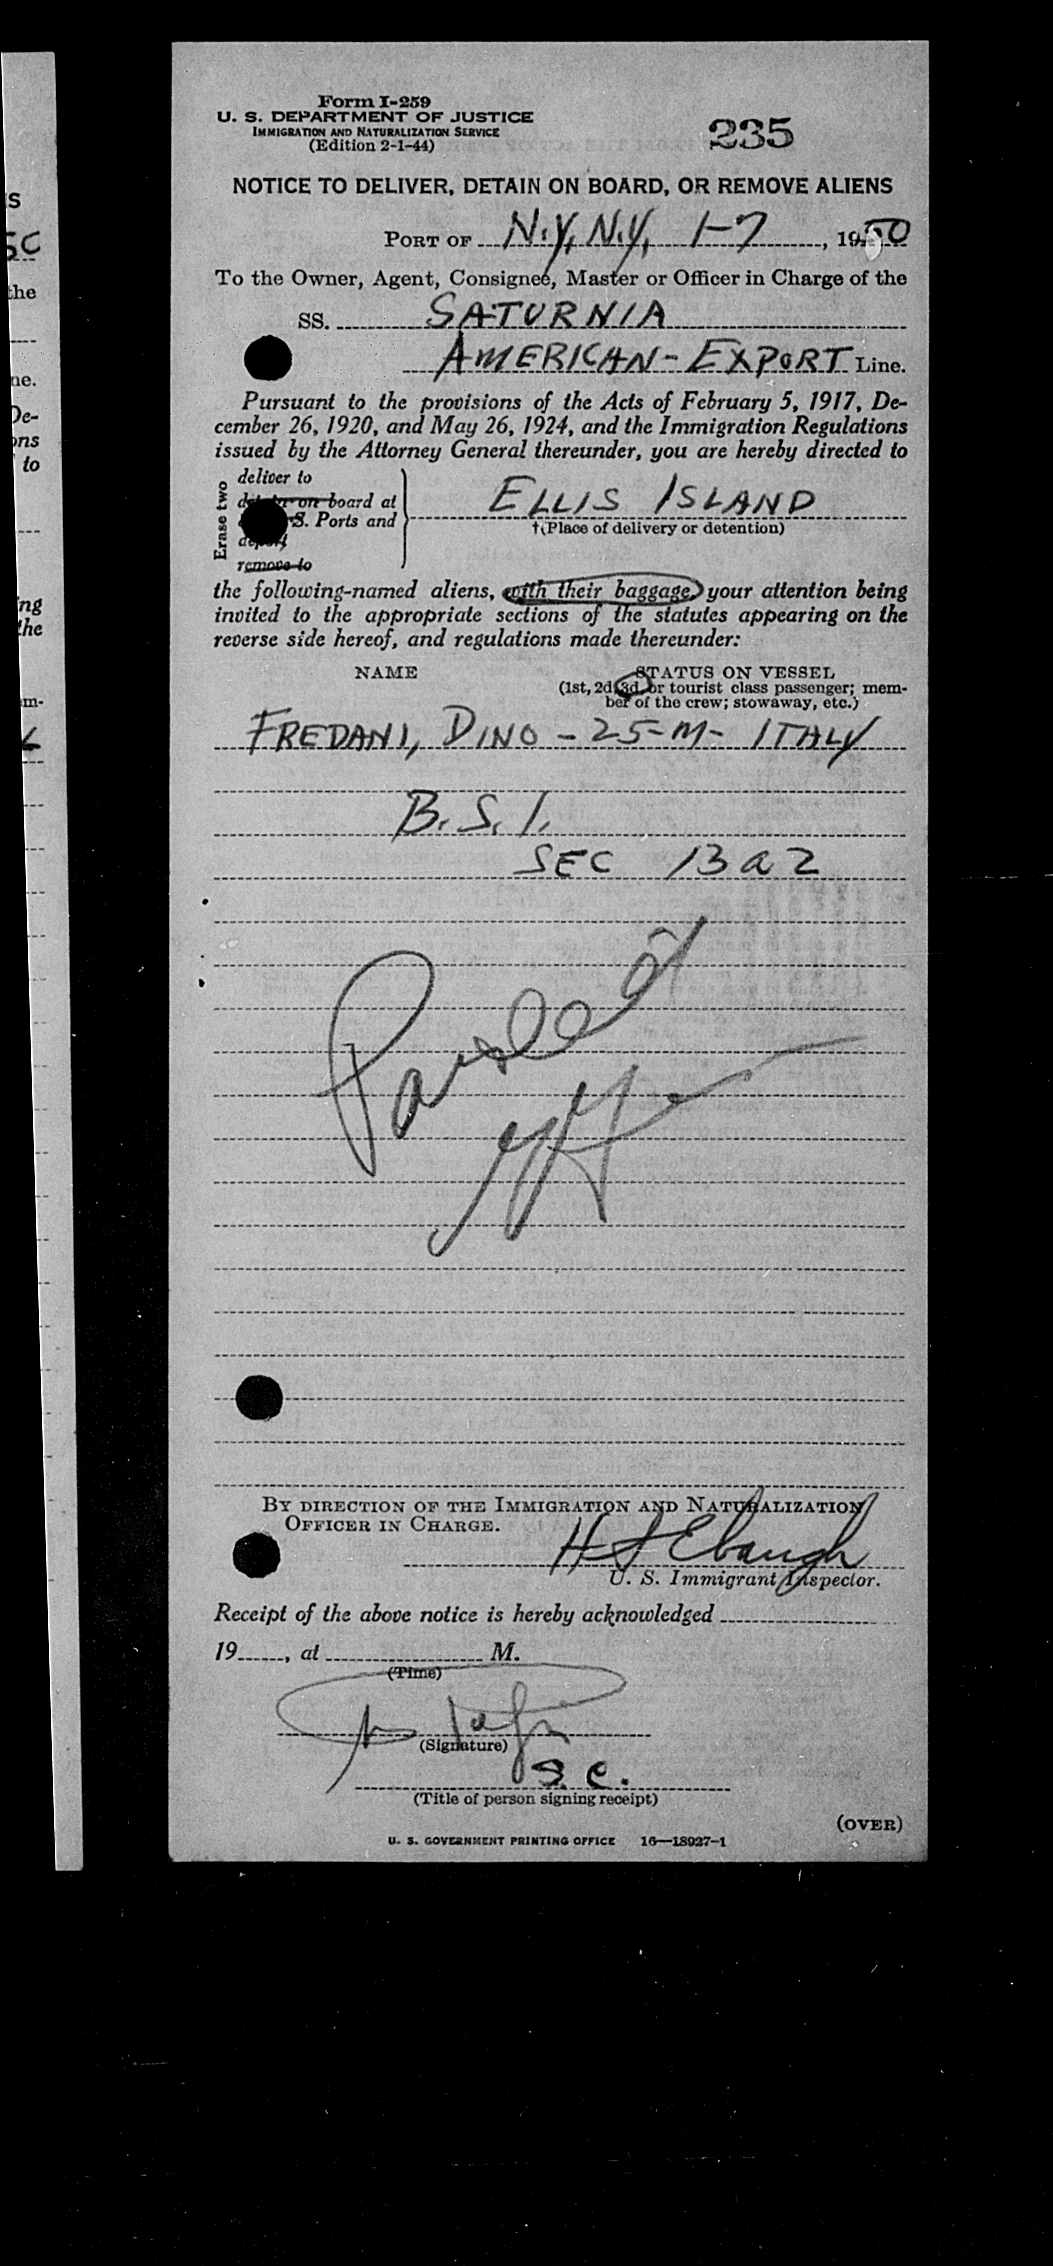 Form I-259
U. S. DEPARTMENT OF JUSTICE
IMMIGRATION AND NATURALIZATION SERVICE
(Edition 2-1-44)
235
NOTICE TO DELIVER, DETAIN ON BOARD, OR REMOVE ALIENS
PORT OF N.Y, N.Y, 1-7, 1950
To the Owner, Agent, Consignee, Master or Officer in Charge of the
SS. SATURNIA
AMERICAN-EXPORT Line.
Pursuant to the provisions of the Acts of February 5, 1917, De-
cember 26, 1920, and May 26, 1924, and the Immigration Regulations
issued by the Attorney General thereunder, you are hereby directed to
Erase two
deliver to
detain on board at
S. Ports and
deport
remove to
ELLIS ISLAND
†(Place of delivery or detention)
the following-named aliens, with their baggage, your attention being
invited to the appropriate sections of the statutes appearing on the
reverse side hereof, and regulations made thereunder:
NAME
STATUS ON VESSEL
(1st, 2d, 3d, or tourist class passenger; mem-
ber of the crew; stowaway, etc.)
FREDANI, DINO - 25-M- ITALY
B. S. I.
SEC 13 a 2
Paroled
BY DIRECTION OF THE IMMIGRATION AND NATURALIZATION
OFFICER IN CHARGE.
H Ebaugh
U. S. Immigrant Inspector.
Receipt of the above notice is hereby acknowledged
19, at M.
(Time)
(Signature)
S. C.
(Title of person signing receipt)
(OVER)
U. S. GOVERNMENT PRINTING OFFICE 16—18927-1
S
SC
the
ne.
De-
ons
to
ng
the
m-